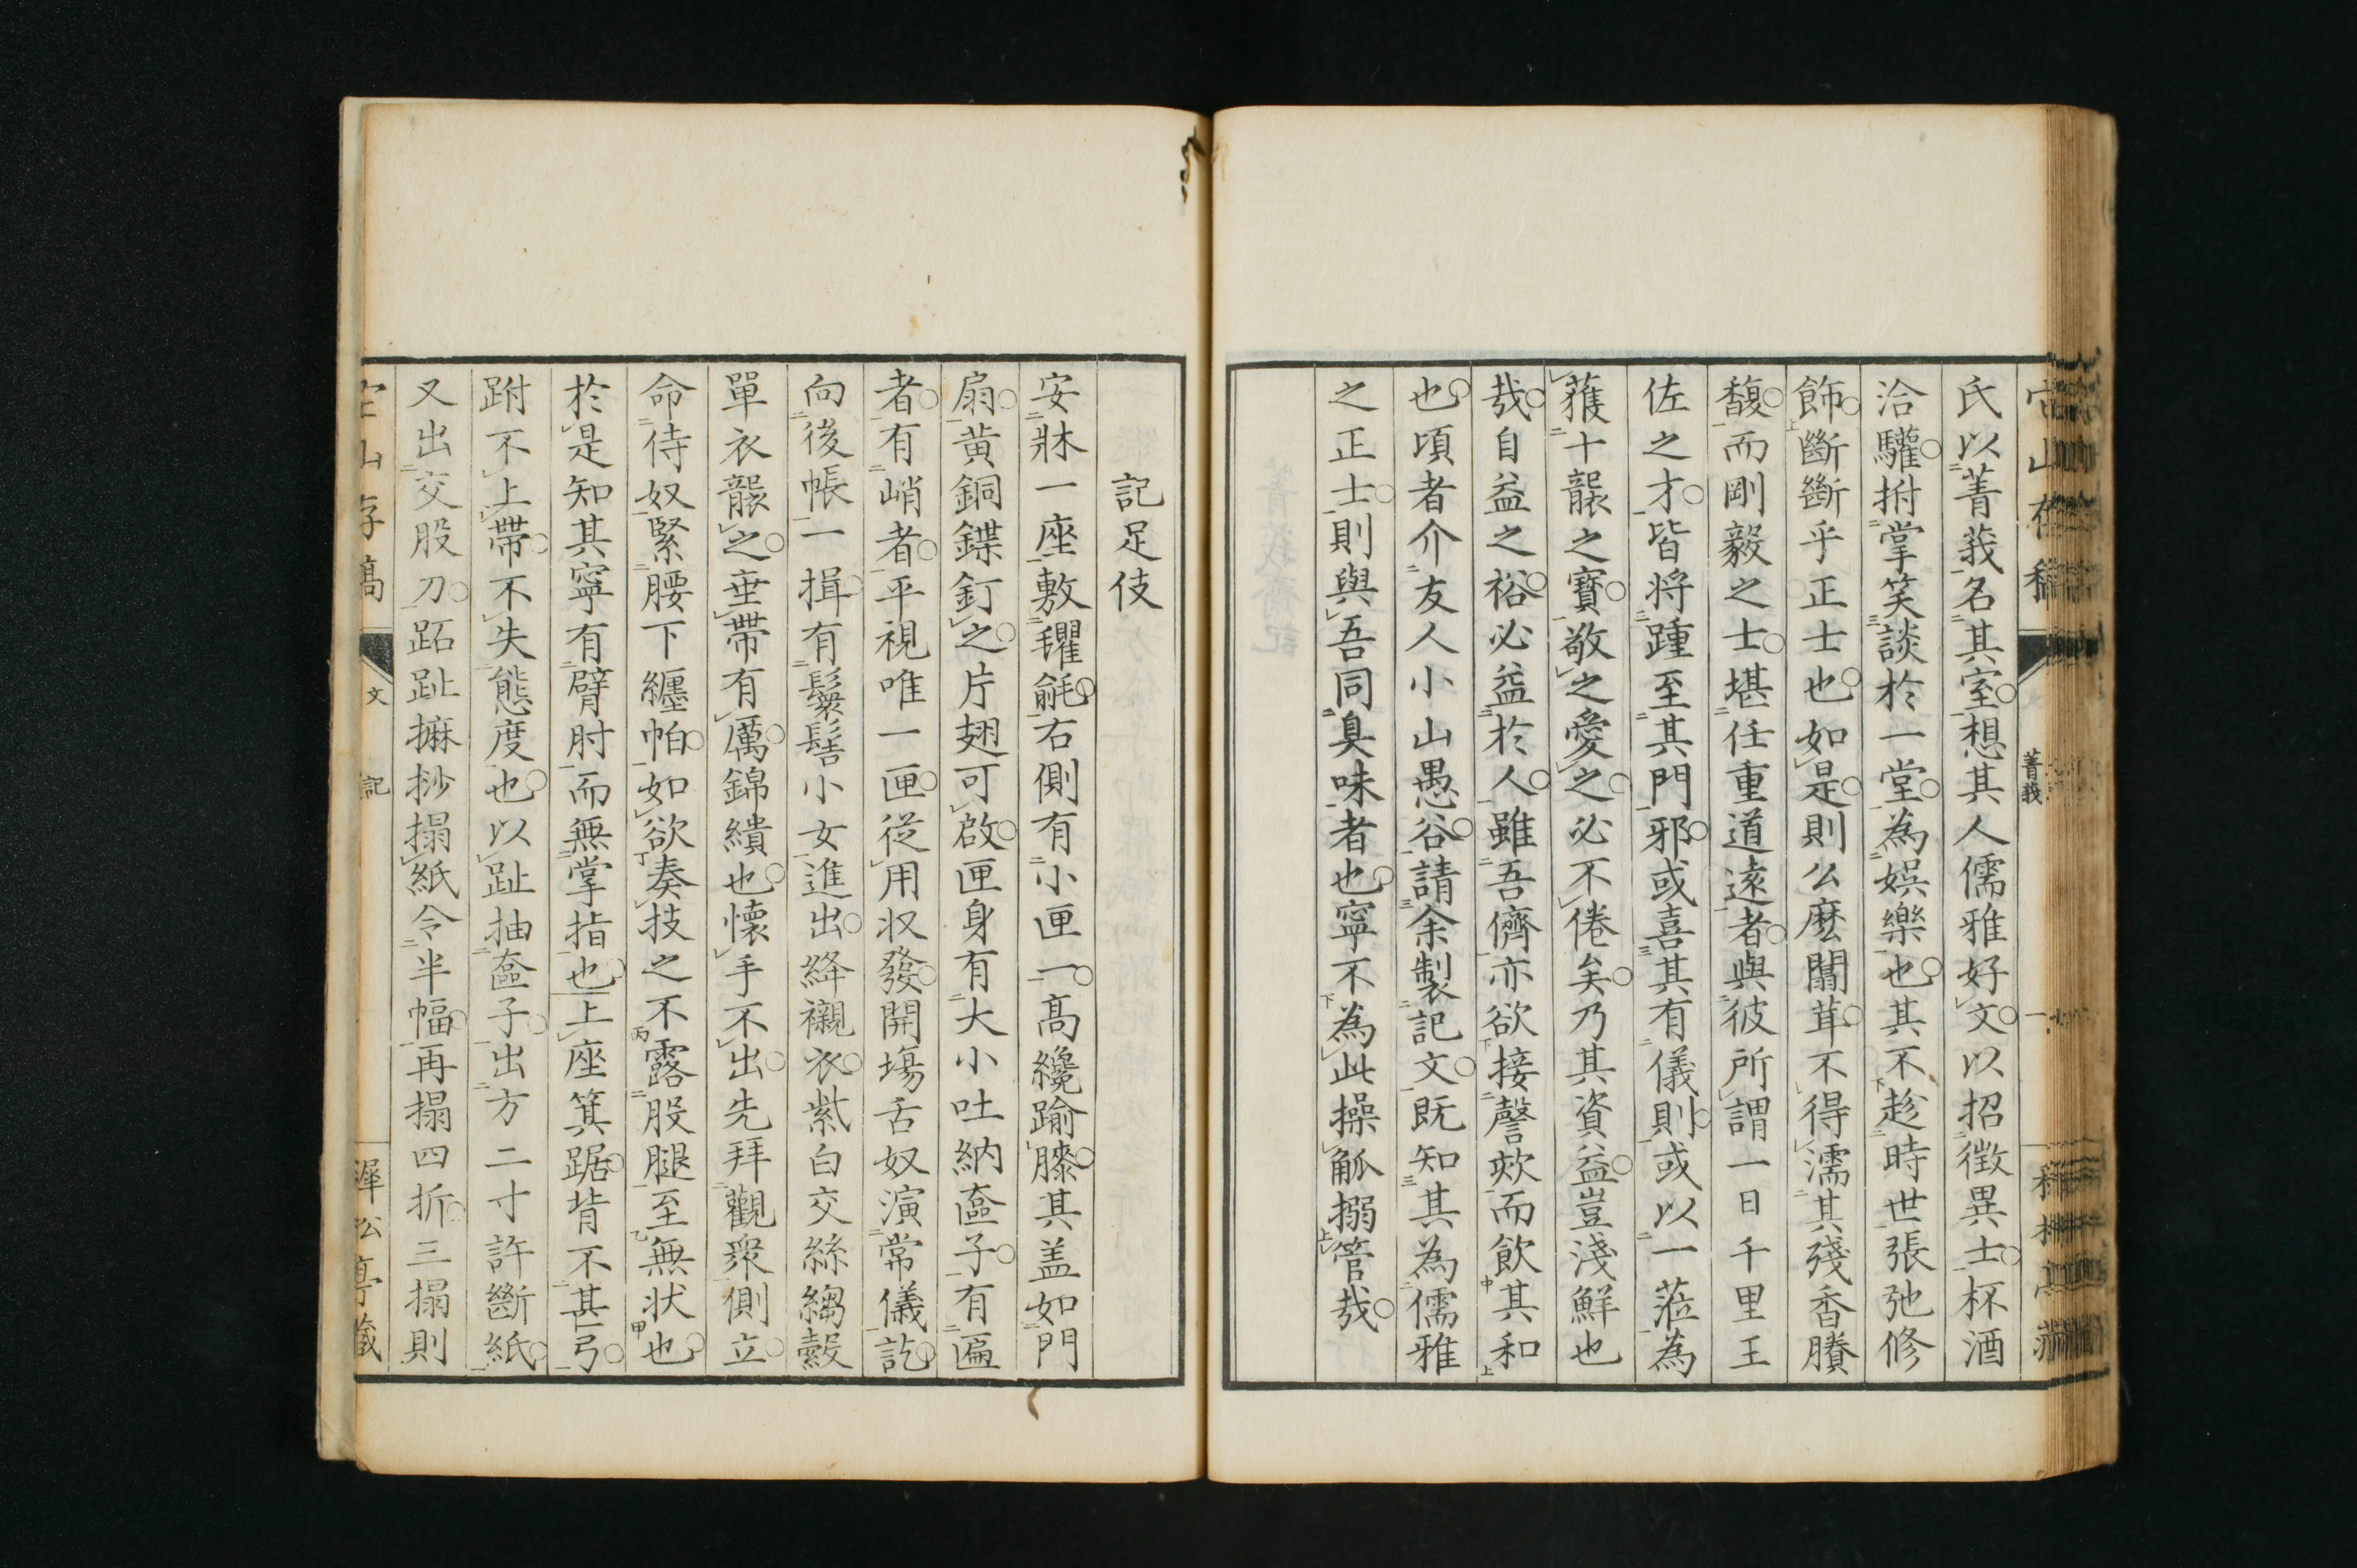 菁莪
氏以菁莪名其室想其人儒雅好文以招徵異士杯酒
洽驩拊掌笑談於一堂為娯樂也其不趁時世張弛修
飾斷斷乎正士也如是則么麽闒茸不得濡其殘香賸
馥而剛毅之士堪任重道遠者與彼所謂一日千里王
佐之才皆将踵至其門邪或喜其有儀則或以一蒞為
獲十襲之寶敬之愛之必不倦矣乃其資益豈淺鮮也
哉自益之裕必益於人雖吾儕亦欲接謦欬而飲其和
也頃者介友人小山愚谷請余製記文既知其為儒雅
之正士則與吾同臭味者也寧不為此操觚搦管哉
記足伎
安牀一座敷氍毹右側有小匣一高纔踰膝其盖如門
扇黄銅鍱釘之片翅可啟匣身有大小吐納奩子有匾
者有峭者平視唯一匣従用収發開場舌奴演常儀訖
向後帳一揖有鬟髻小女進出絳襯衣紫白交絲縐縠
單衣襲之埀帶有厲錦繢也懐手不出先拜觀衆側立
命侍奴緊腰下纏帕如欲奏技之不露股腿至無状也
於是知其寧有臂肘而無掌指也上座箕踞背不甚弓
跗不上帶不失態度也以趾抽奩子出方二寸許斷紙
又出交股刀跖趾摭抄搨紙令半幅再搨四折三搨則
文 記